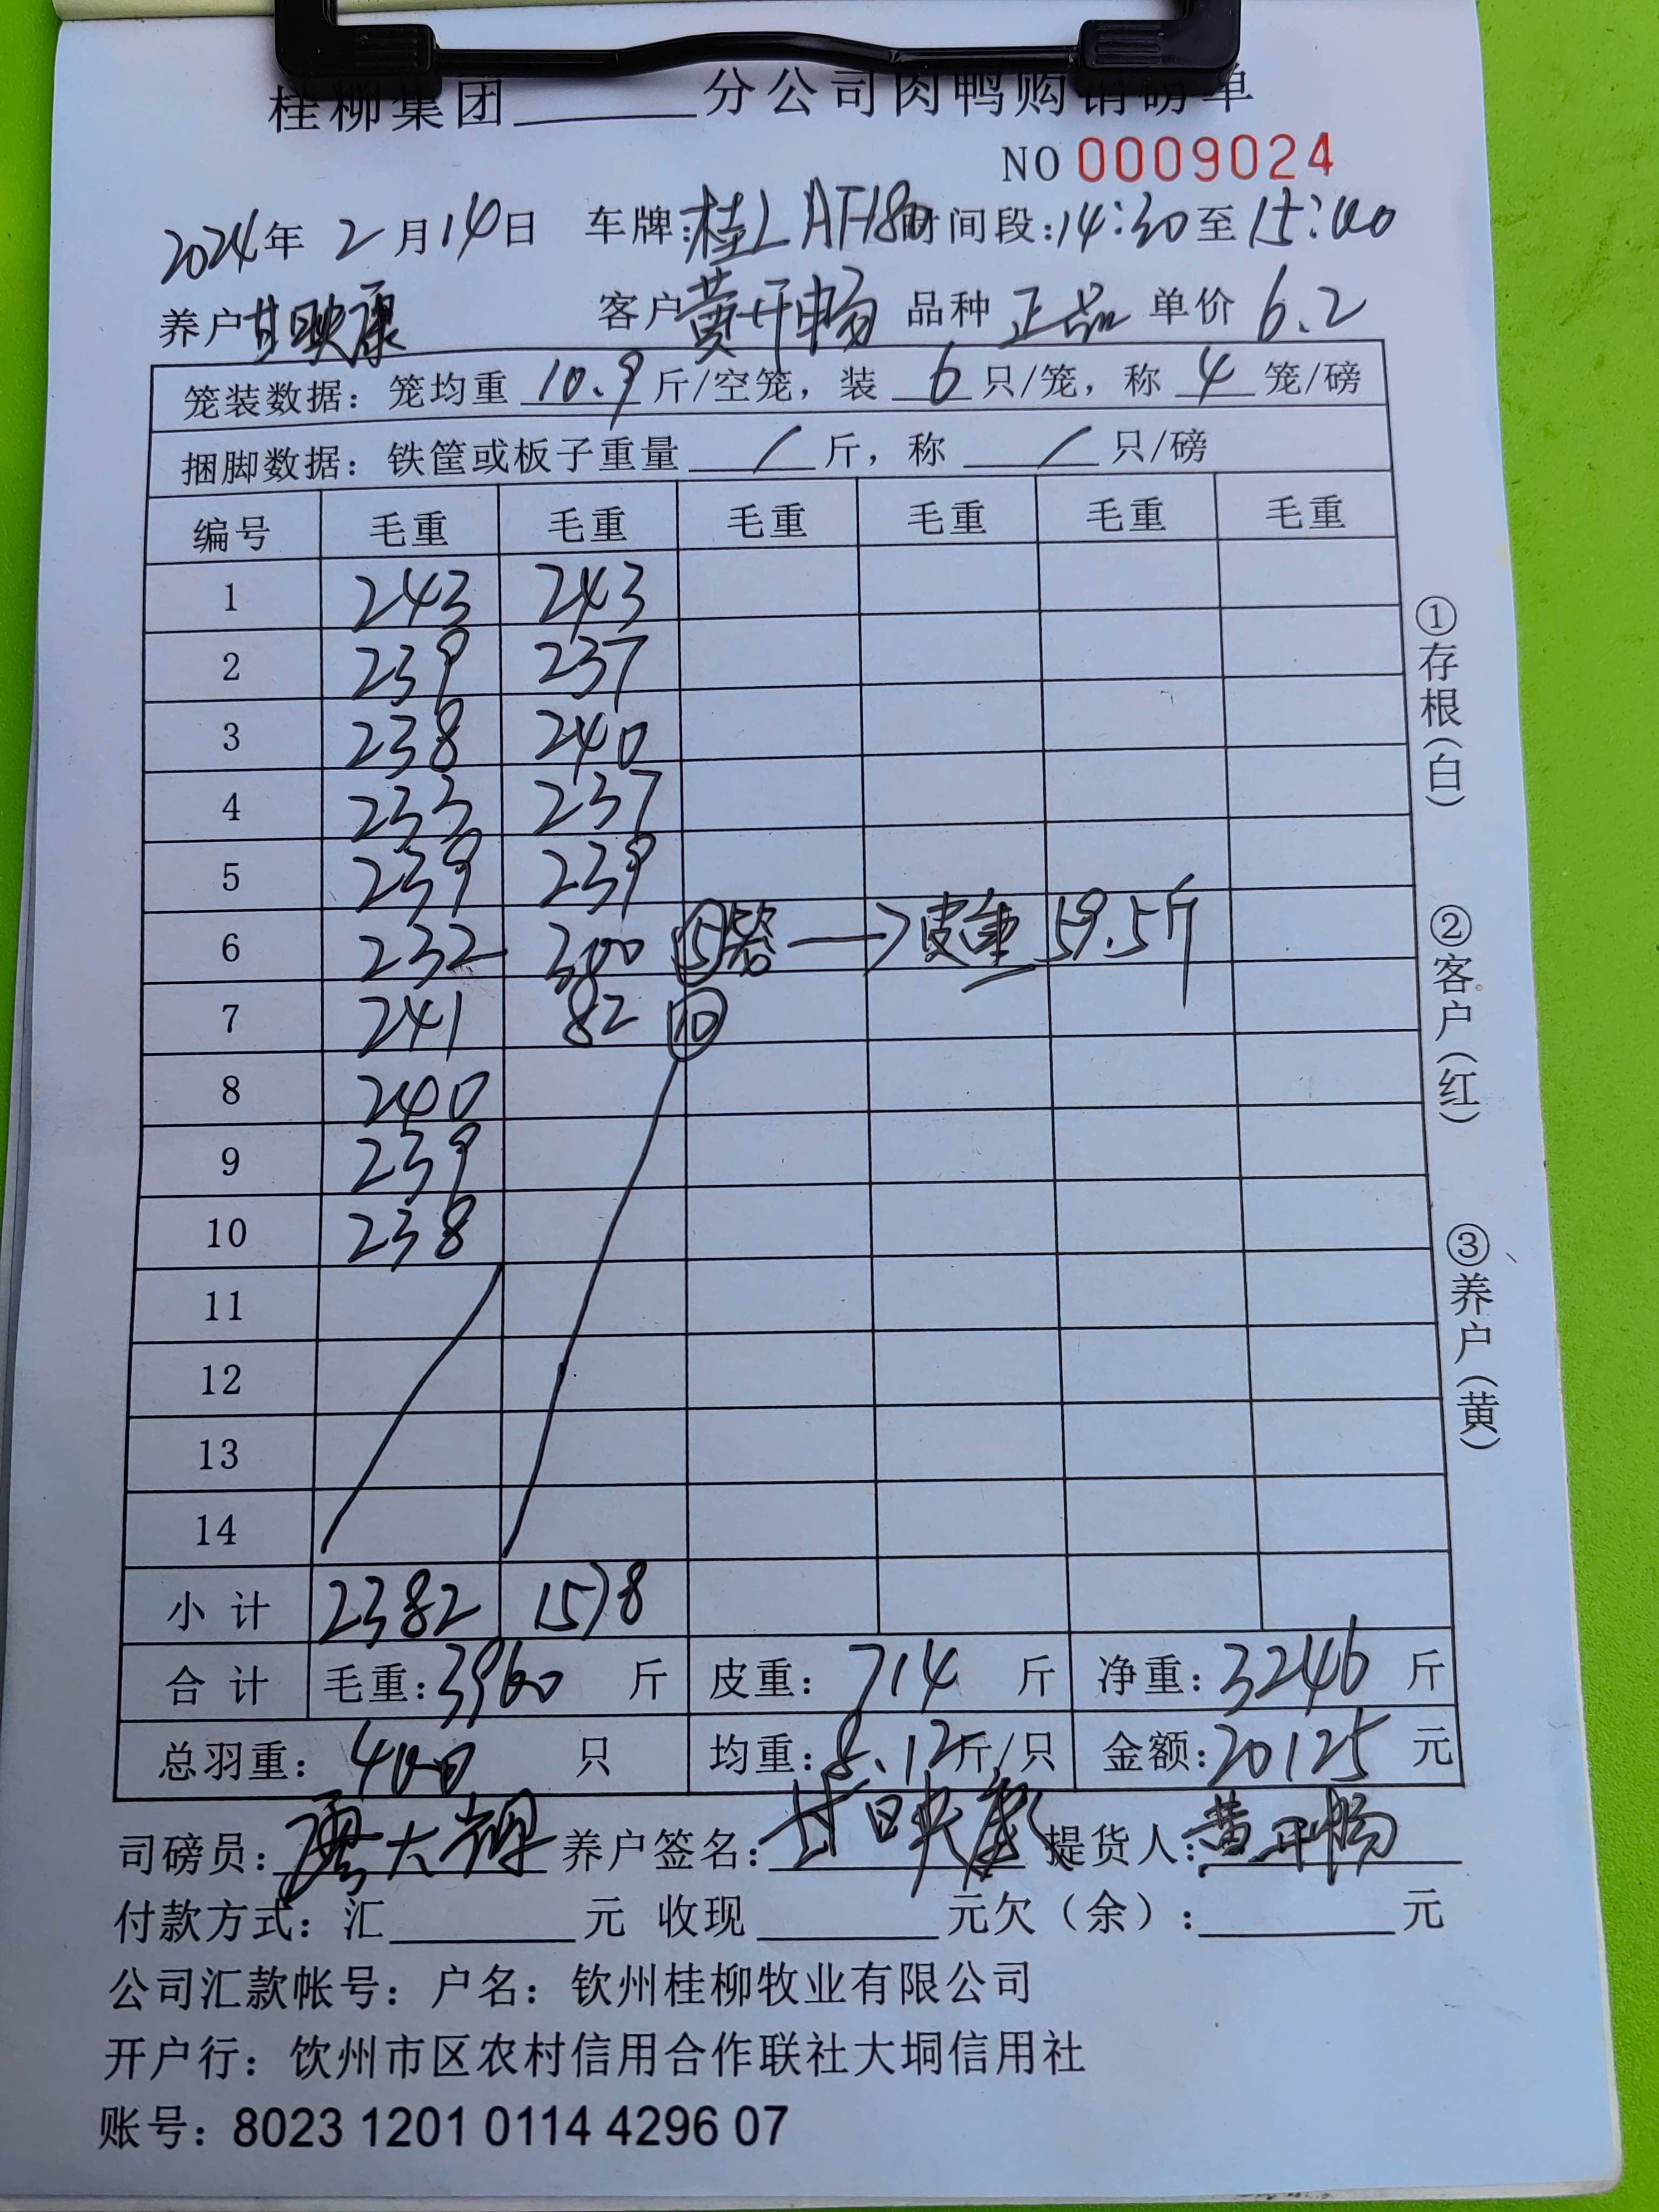 桂柳集团______分公司肉鸭购销磅单
NO 0009024
2024年 2月14日 车牌:桂L AF180 时间段:14:30至15:00
养户 甘映康 客户 黄开畅 品种 正品 单价 6.2
笼装数据：笼均重 10.9 斤/空笼，装 6 只/笼，称 4 笼/磅
捆脚数据：铁筐或板子重量 / 斤，称 / 只/磅
编号 毛重 毛重 毛重 毛重 毛重 毛重
1 243 243
2 239 237
3 238 240
4 233 237
5 239 239
6 232 300 ⑤笼 → 皮重 59.5斤
7 241 82 ⑩
8 240
9 239
10 238
11
12
13
14
小计 2382 1578
合计 毛重:3960 斤 皮重：714 斤 净重：3246 斤
总羽重：400 只 均重:8.12斤/只 金额:20125 元
司磅员: 大辉 养户签名: 甘映康 提货人: 黄开畅
付款方式：汇______元 收现______元欠（余）:______元
公司汇款帐号：户名：钦州桂柳牧业有限公司
开户行：饮州市区农村信用合作联社大垌信用社
账号：8023 1201 0114 4296 07
①存根(白)
②客户(红)
③养户(黄)